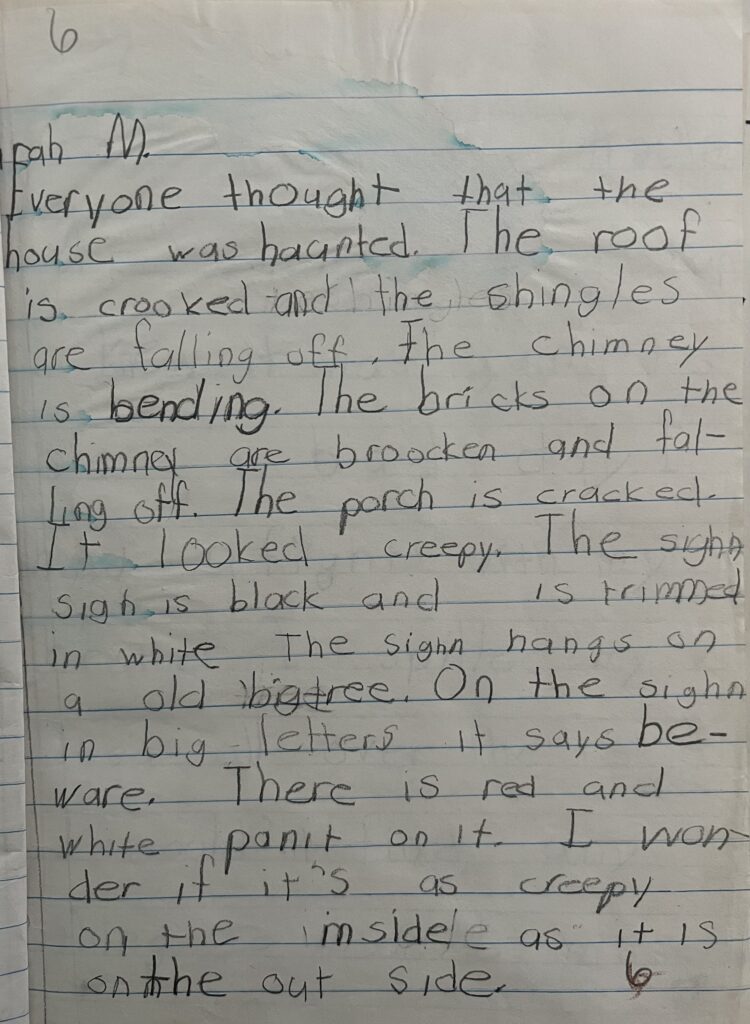 6
rah M.
Everyone thought that the
house was haanted. The roof
is crooked and the shingles
are falling off. The chimney
is bending. The bricks on the
chimney are broocken and fal-
ling off. The porch is cracked.
It looked creepy. The sighn
sigh is black and is trimmed
in white The sighn hangs on
a old big tree. On the sighn
in big letters it says be-
ware. There is red and
white panit on it. I won-
der if it's as creepy
on the inside as it is
on the out side. 6